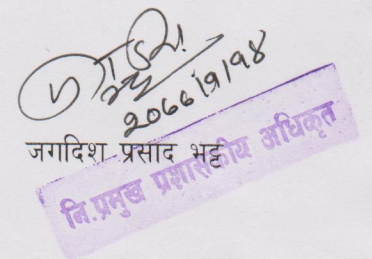 २०७७।१।१४
जगदिश प्रसाद भट्ट
नि.प्रमुख प्रशासकीय अधिकृत